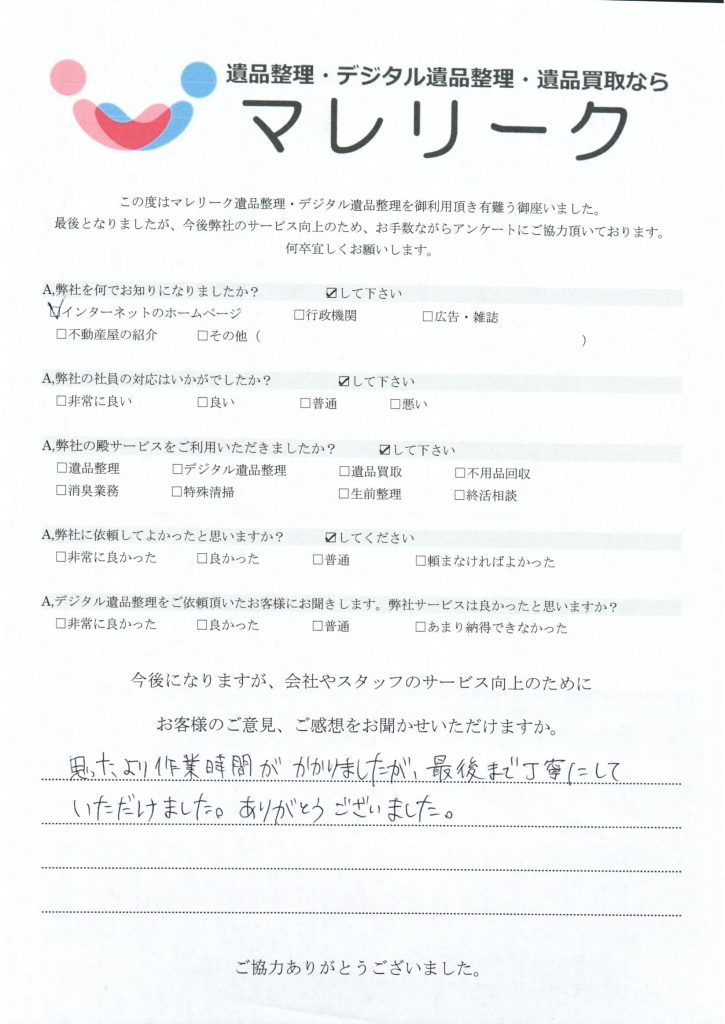 遺品整理・デジタル遺品整理・遺品買取なら
マレリーク
この度はマレリーク遺品整理・デジタル遺品整理を御利用頂き有難う御座いました。
最後となりましたが、今後弊社のサービス向上のため、お手数ながらアンケートにご協力頂いております。
何卒宜しくお願いします。
A,弊社を何でお知りになりましたか？ ☑して下さい
☑インターネットのホームページ □行政機関 □広告・雑誌
□不動産屋の紹介 □その他（ ）
A,弊社の社員の対応はいかがでしたか？ ☑して下さい
□非常に良い □良い □普通 □悪い
A,弊社の殿サービスをご利用いただきましたか？ ☑して下さい
□遺品整理 □デジタル遺品整理 □遺品買取 □不用品回収
□消臭業務 □特殊清掃 □生前整理 □終活相談
A,弊社に依頼してよかったと思いますか？ ☑してください
□非常に良かった □良かった □普通 □頼まなければよかった
A,デジタル遺品整理をご依頼頂いたお客様にお聞きします。弊社サービスは良かったと思いますか？
□非常に良かった □良かった □普通 □あまり納得できなかった
今後になりますが、会社やスタッフのサービス向上のために
お客様のご意見、ご感想をお聞かせいただけますか。
思ったより作業時間がかかりましたが、最後まで丁寧にして
いただけました。ありがとうございました。
ご協力ありがとうございました。